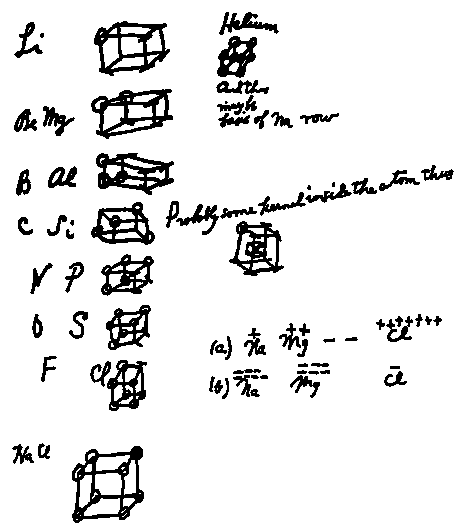 Li
Helium
And this
may be
basis of m row
Be Mg
B Al
Probably some kernel inside the atom thus
C Si
N P
O S
F Cl
(a) Na + Mg ++ - - Cl +++++++
(b) Na Mg Cl -
Na Cl